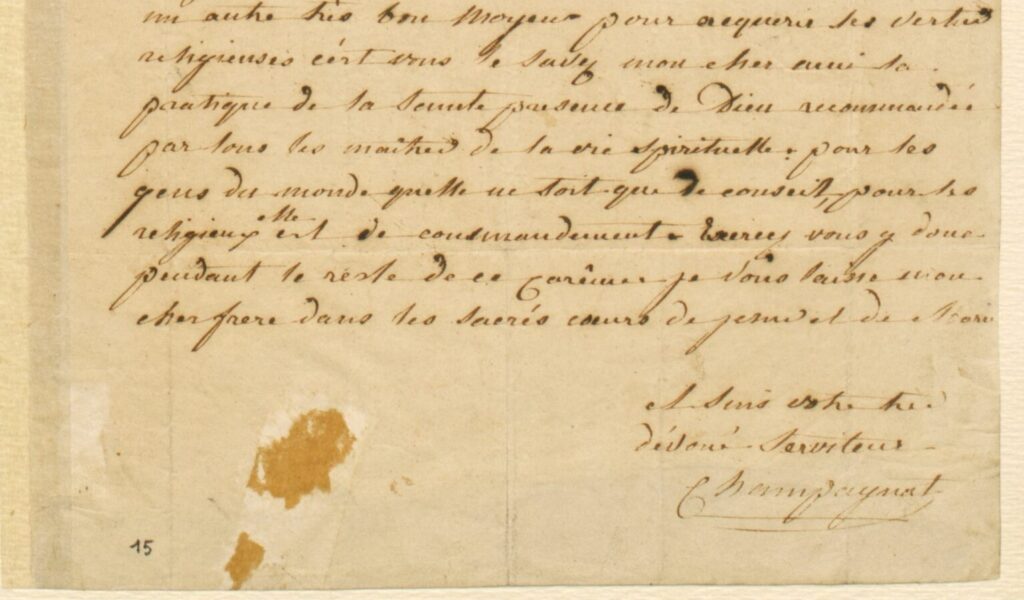 un autre très bon moyen pour acquerir les vertus
religieuses c'est vous le savez mon cher ami la
pratique de la sainte presence de Dieu recommandée
par tous les maitres de la vie spirituelle. pour les
gens du monde quelle ne soit que de conseil, pour les
religieux elle est de commandement. Exercez vous y donc
pendant le reste de ce carême. je vous laisse mon
cher frere dans les sacrés cœurs de jesus et de Marie
et suis votre très
dévoué serviteur
Champagnat
15